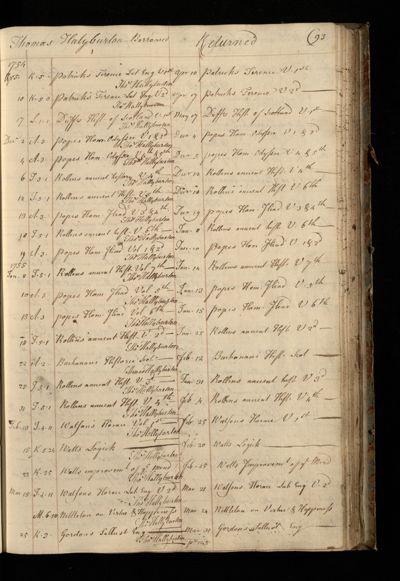 Thomas Halyburton Borrowed Returned 93
1754
Patricks Terence Lat Eng V 1st Apr 10 Patricks Terence V 1st
Tho: Hallyburton
10 K-5- Patricks Terence Lat Eng V 2d Apr 17 Patricks Terence V 2d
Tho: Hallyburton
17 Duffs Hist of Scotland V 1st May 17 Duffs Hist of Scotland V 1st
Tho: Hallyburton
Dec 2 A-2- popes Hom: Odysey V 1 & 2 Dec 4 popes Hom: Odysey V 1 & 2
Tho: Hallyburton
4 A-2- popes Hom Odysey V 4 & 5th Dec popes Hom Odysey V 4 & 5th
Tho: Hallyburton
6 I-5-1 Rollins ancient history V 4th Dec Rollins ancient Hist. V 4th
Tho: Hallyburton
12 I-5-1 Rollins ancient Hist. V 6th Dec Rollins ancient Hist V 6th
Tho: Hallyburton
A-2- popes Hom Iliad V 3 & 4th Dec 19 popes Hom: Iliad V 3 & 4th
Tho: Hallyburton
I-5-1 Rollins ancient hist. V 6th Jan Rollins ancient hist: V 6th
Tho: Hallyburton
19 A-2- popes Hom Iliad Vol 1 & 2 Jan popes Hom Iliad V 1 & 2
Tho: Hallyburton
1755
Jan 8 I-5-1 Rollins ancient Hist. Vol 7th Jan 14 Rollins ancient Hist: V 7th
Tho: Hallyburton
10 A-2 popes Hom Iliad Vol 5th Jan 13 popes Hom Iliad V 5th
Tho: Hallyburton
13 A-2 popes Hom: Iliad Vol 6th Jan 15 popes Hom: Iliad V 6th
Tho: Hallyburton
I-5-1 Rollins ancient Hist V 2d Jan 25 Rollins ancient Hist V 2d
Tho: Hallyburton
22 Buchanans Historie Scot Feb 12 Buchanans Hist. Scot
Tho: Hallyburton
I-5-1 Rollins ancient Hist V 3d Jan 31 Rollins ancient hist V 3d
Tho: Hallyburton
31 I-5-1 Rollins ancient Hist V 4th Feb Rollins ancient Hist: V 4th
Tho: Hallyburton
Feb I-4-11 Watsons Horace Vol 1st Feb 25 Watsons Horace V 1st
Tho: Hallyburton
15 K-5- Watts Logick Feb 20 Watts Logick
Tho: Hallyburton
22 K-25 Watts improvement of mind Feb 25 Watts Improvemt. of ye Mind
Tho: Hallyburton
Mar I-4-11 Watsons Horace Lat Eng V 2d Mar 21 Watsons Horace Lat Eng V 2d
Tho: Hallyburton
M-6- Nettleton on Virtue & Happiness Mar 24 Nettleton on Virtue & Happiness
Tho: Hallyburton
25 K-3- Gordons Sallust Eng Mar 31 Gordons Sallust Eng
Tho: Hallyburton